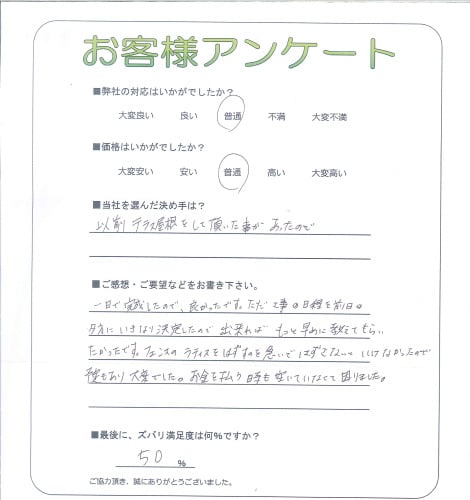 お客様アンケート
■弊社の対応はいかがでしたか？
大変良い 良い 普通 不満 大変不満
■価格はいかがでしたか？
大変安い 安い 普通 高い 大変高い
■当社を選んだ決め手は？
以前 テラス屋根をして頂いた事が あったので
■ご感想・ご要望などをお書き下さい。
一日で完成したので、良かったです。ただ 工事の日程を前日の
夕方に いきなり決定したので 出来れば もっと早めに 教えてもらい
たかったです。フェンスの ラティスをはずすのを急いで はずさないと いけなかったので
雨もあり 大変でした。お金を払う日時も 空いていなくて 困りました。
■最後に、ズバリ満足度は何%ですか？
50 %
ご協力頂き、誠にありがとうございました。